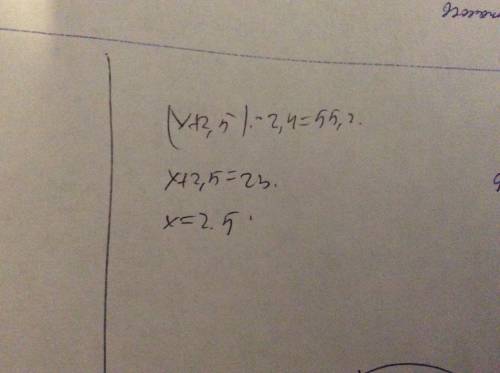 (x+2,5)·-2,4=55,2.
x+2,5=23.
x=2.5